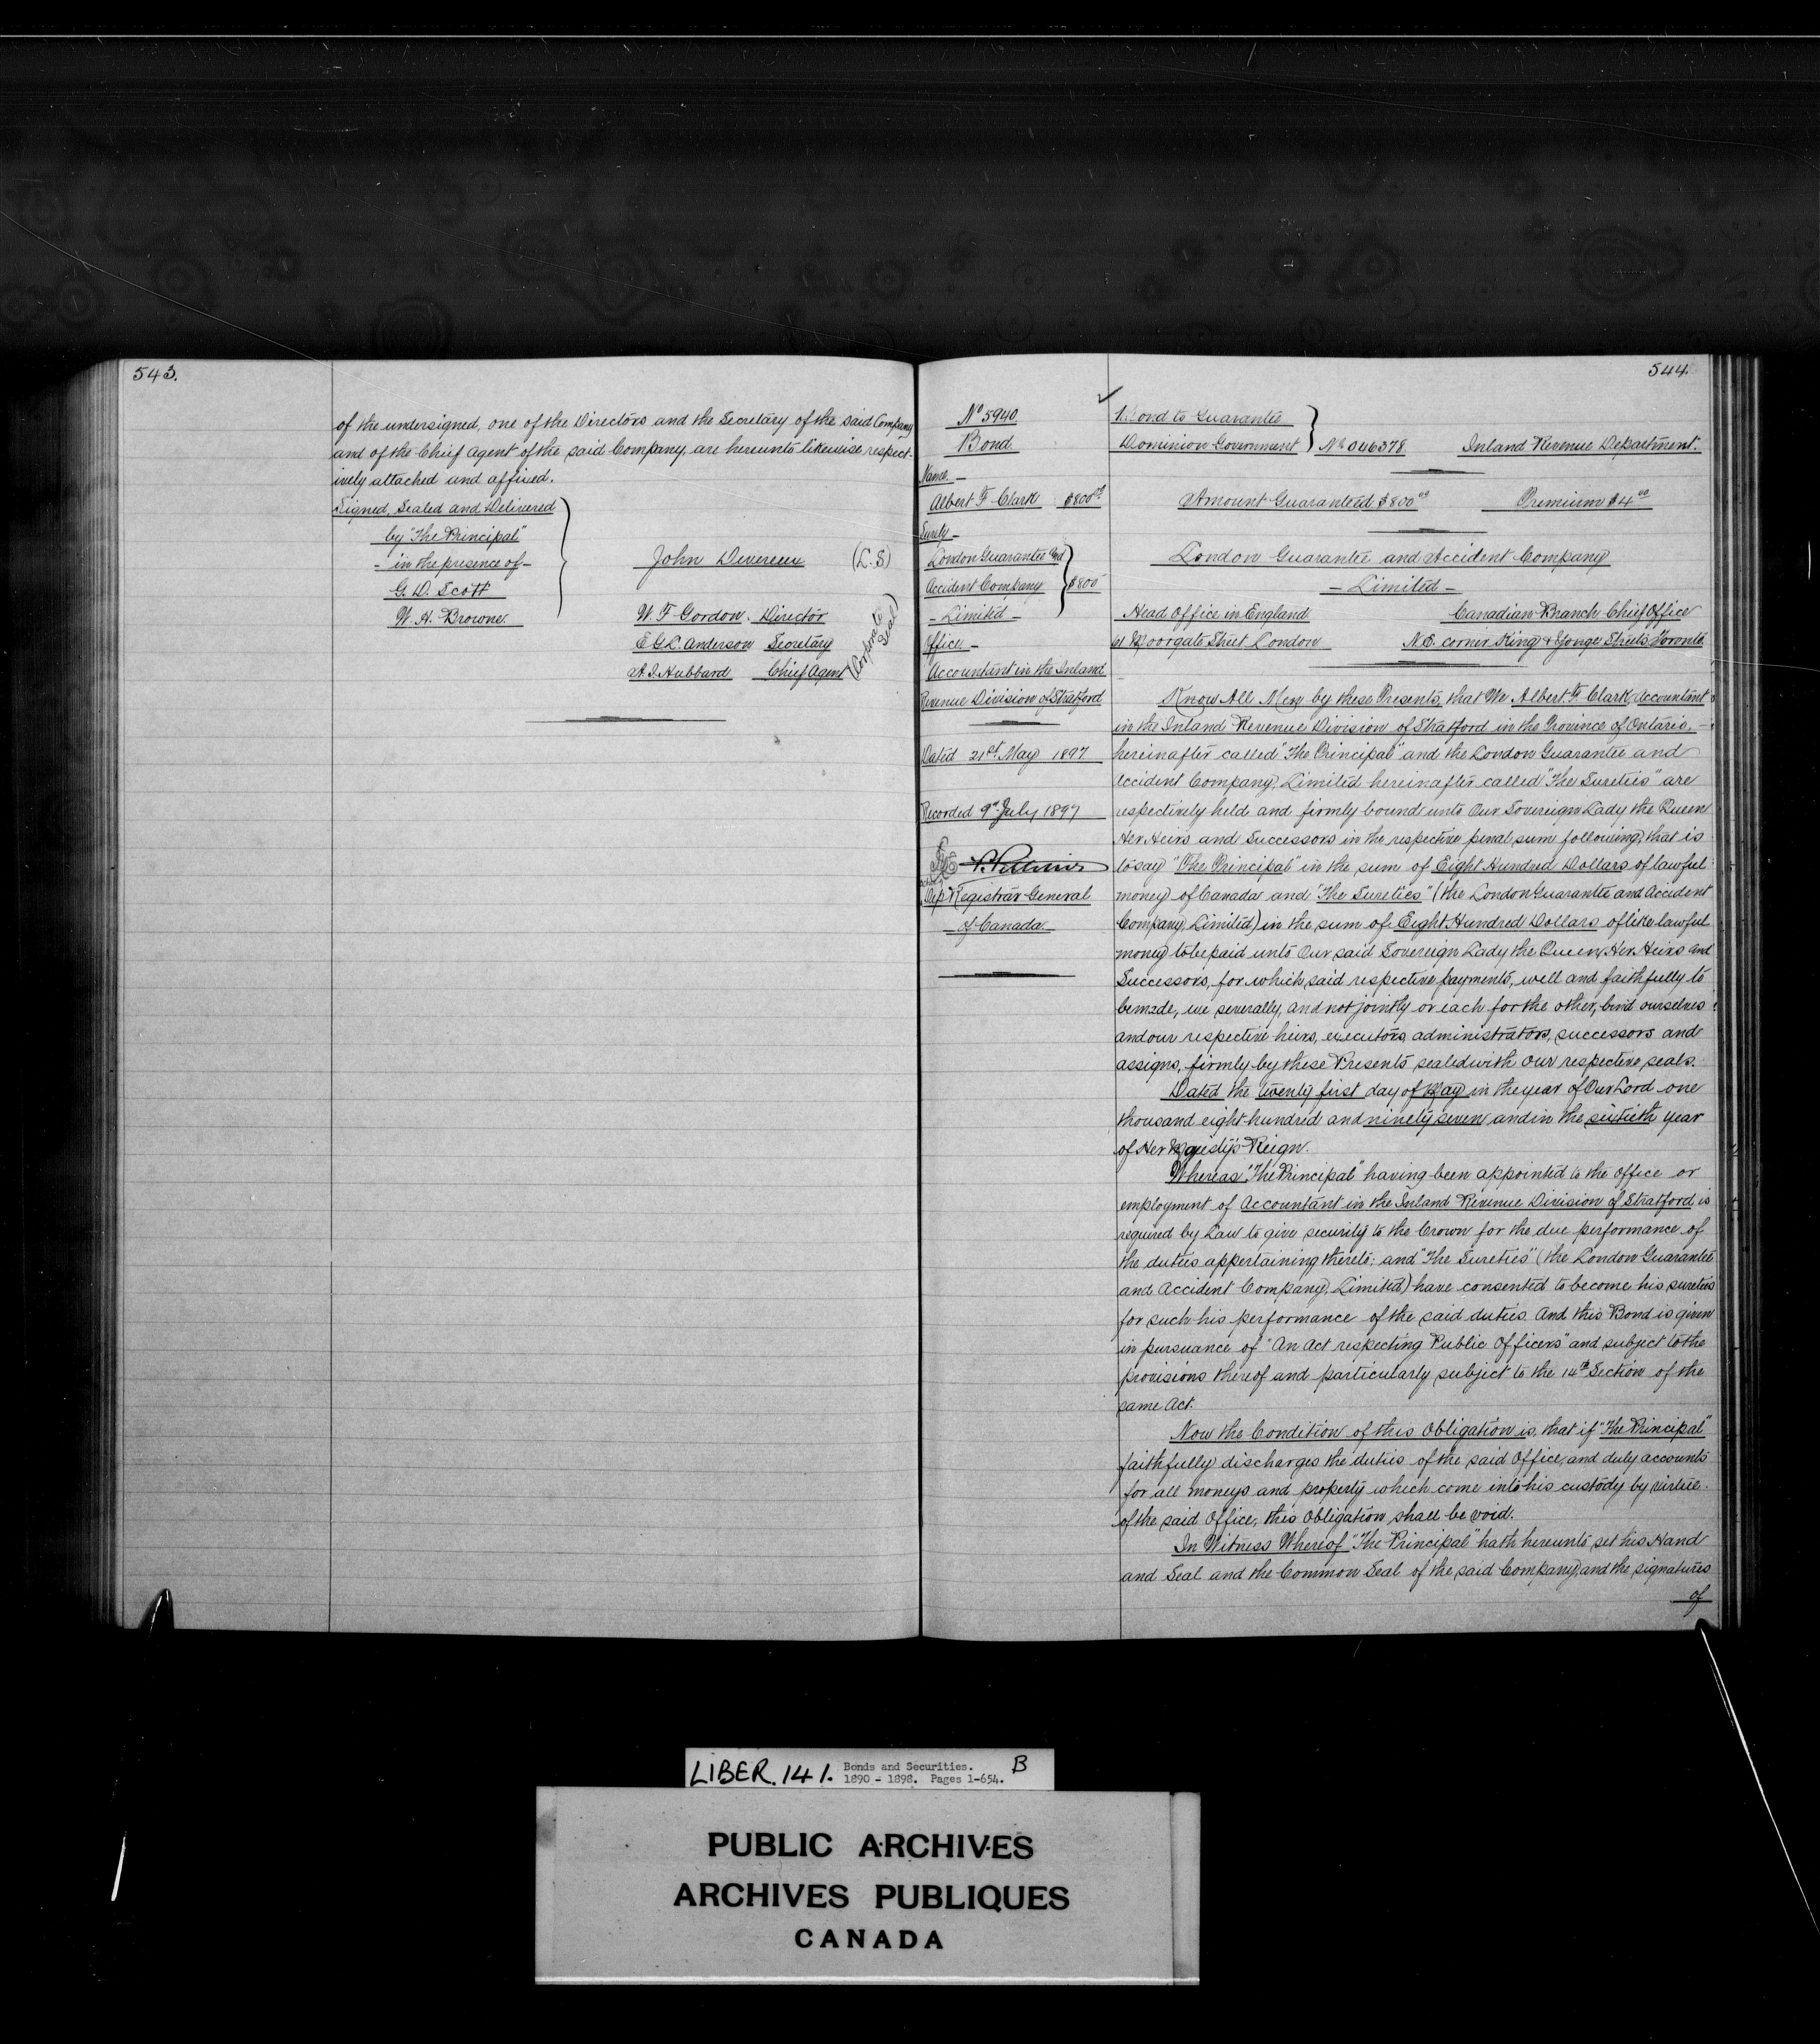 543.
of the undersigned, one of the Directors and the Secretary of the said Company
and of the Chief Agent of the said Company, are hereunto likewise respect-
ively attached and affixed.
Signed, Sealed and Delivered
by "The Principal"
- in the presence of -
G. D. Scott
W. H. Browne
John Devereux (L.S)
W. F. Gordon. Director
E G L. Anderson Secretary
Chief Agent
(Corporate Seal)
No 5940
Bond
Name -
Albert F Clark $800.00
Surety -
London Guarantee and
Accident Company
- Limited -
$800
Office -
Accountant in the Inland
Revenue Division of Stratford
Dated 21st May 1897
Recorded 9th July 1897
Dep Registrar General
of Canada.
544.
Bond to Guarantee
Dominion Government
No 046378. Inland Revenue Department.
Amount Guaranteed $800.00 Premium $4.00
London Guarantee and Accident Company
- Limited -
Head Office in England Canadian Branch Chief Office
61 Moorgate Street London N.E. corner King & Yonge Streets Toronto
Know All Men by these Presents, that We Albert F. Clark, Accountant
in the Inland Revenue Division of Stratford in the Province of Ontario, -
hereinafter called "The Principal" and the London Guarantee and
Accident Company, Limited hereinafter called "The Sureties" are
respectively held and firmly bound unto Our Sovereign Lady the Queen
Her Heirs and Successors in the respective penal sum following, that is
to say "The Principal" in the sum of Eight Hundred Dollars of lawful
money of Canada and "The Sureties" (the London Guarantee and Accident
Company, Limited) in the sum of Eight Hundred Dollars of like lawful
money to be paid unto Our said Sovereign Lady the Queen, Her Heirs and
Successors, for which said respective payments, well and faithfully to
be made, we severally, and not jointly or each for the other, bind ourselves
and our respective heirs, executors, administrators, successors and
assigns, firmly by these Presents sealed with our respective seals.
Dated the twenty first day of May in the year of Our Lord one
thousand eight hundred and ninety seven and in the sixtieth year
of Her Majesty's Reign.
Whereas "The Principal" having been appointed to the office or
employment of Accountant in the Inland Revenue Division of Stratford is
required by Law to give security to the Crown for the due performance of
the duties appertaining thereto; and "The Sureties" (the London Guarantee
and Accident Company, Limited) have consented to become his sureties
for such his performance of the said duties. And this Bond is given
in pursuance of "An Act respecting Public Officers" and subject to the
provisions thereof and particularly subject to the 14th Section of the
same Act.
Now the Condition of this Obligation is, that if "The Principal"
faithfully discharges the duties of the said Office, and duly accounts
for all moneys and property which come into his custody by virtue
of the said Office, this Obligation shall be void.
In Witness Whereof "The Principal" hath hereunto set his Hand
and Seal and the Common Seal of the said Company, and the signatures
of
LIBER. 141. Bonds and Securities. B
1890 - 1898. Pages 1-654.
PUBLIC ARCHIVES
ARCHIVES PUBLIQUES
CANADA